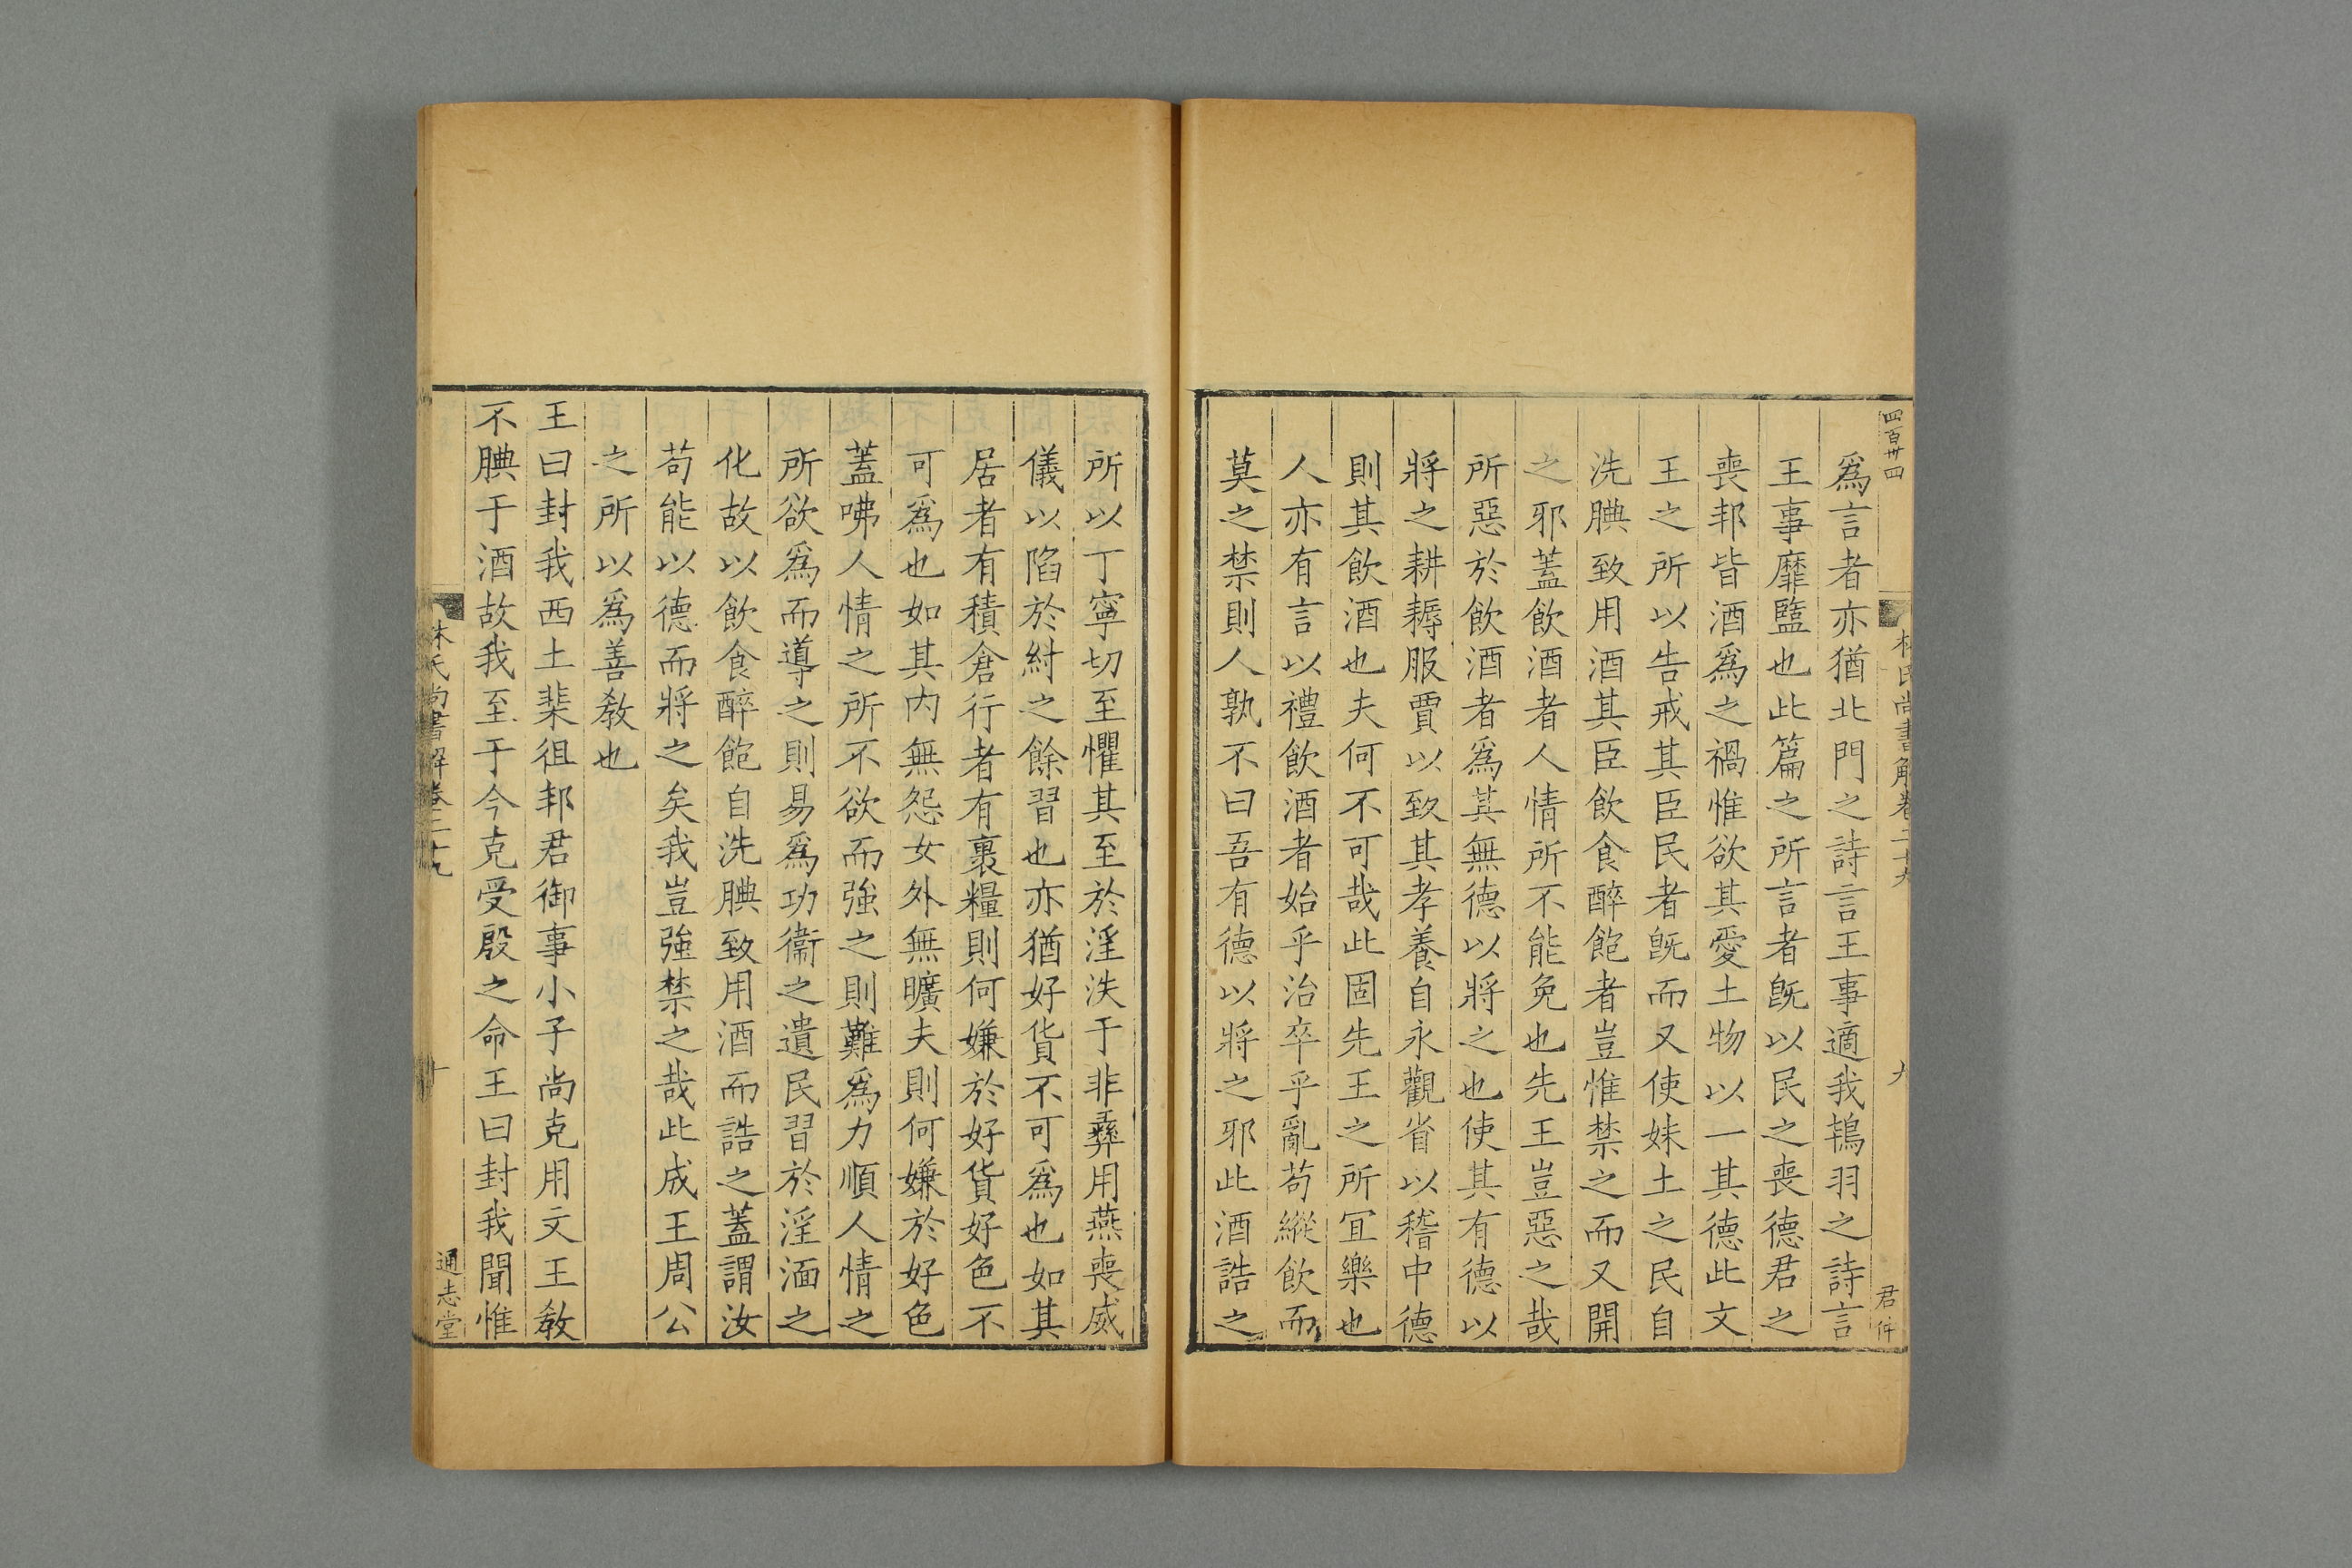 四百卅四
林氏尚書解卷二十九
九
君仵
爲言者亦猶北門之詩言王事適我鴇羽之詩言
王事靡盬也此篇之所言者旣以民之喪德君之
喪邦皆酒爲之禍惟欲其愛土物以一其德此文
王之所以告戒其臣民者旣而又使妹土之民自
洗腆致用酒其臣飲食醉飽者豈惟禁之而又開
之邪蓋飲酒者人情所不能免也先王豈惡之哉
所惡於飲酒者爲其無德以將之也使其有德以
將之耕耨服賈以致其孝養自永觀省以稽中德
則其飲酒也夫何不可哉此固先王之所宜樂也
人亦有言以禮飲酒者始乎治卒乎亂苟縱飲而
莫之禁則人孰不曰吾有德以將之邪此酒誥之
所以丁寧切至懼其至於淫泆于非彝用燕喪威
儀以陷於紂之餘習也亦猶好貨不可爲也如其
居者有積倉行者有裹糧則何嫌於好貨好色不
可爲也如其内無怨女外無曠夫則何嫌於好色
蓋咈人情之所不欲而強之則難爲力順人情之
所欲爲而導之則易爲功衞之遺民習於淫湎之
化故以飲食醉飽自洗腆致用酒而誥之蓋謂汝
苟能以德而將之矣我豈強禁之哉此成王周公
之所以爲善教也
王曰封我西土棐徂邦君御事小子尚克用文王教
不腆于酒故我至于今克受殷之命王曰封我聞惟
林氏尚書解卷二十九
十
通志堂